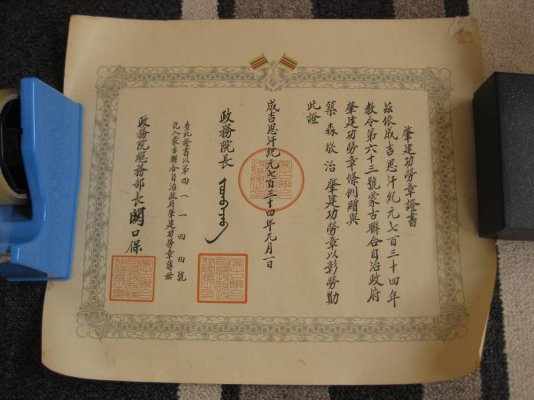 肇建功勞章證書
茲依成吉思汗紀元七百三十四年
教令第六十三號蒙古聯合自治政府
肇建功勞章條例贈與
築森敬治肇建功勞章以彰勞勩
此證
成吉思汗紀元七百三十四年九月一日
政務院長
查此證書以第四一一四四號
記入蒙古聯合自治政府肇建功勞章簿冊
政務院總務部長關口保